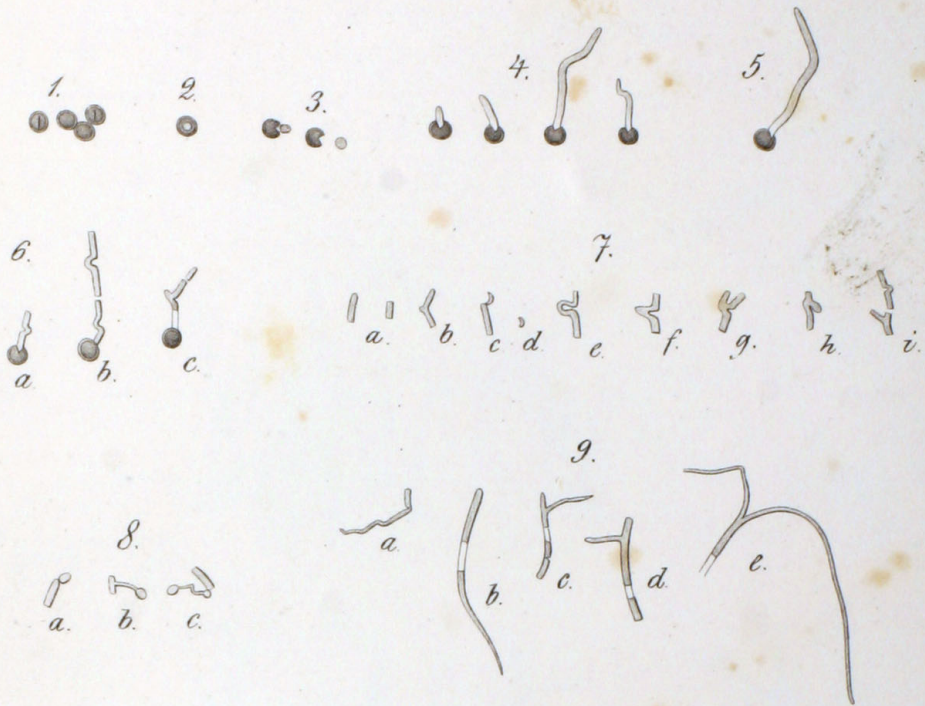 1. 2. 3. 4. 5.
6. 7.
a. b. c. a. b. c d. e. f. g. h. i.
8. 9.
a. b. c. a. b. c. d. e.